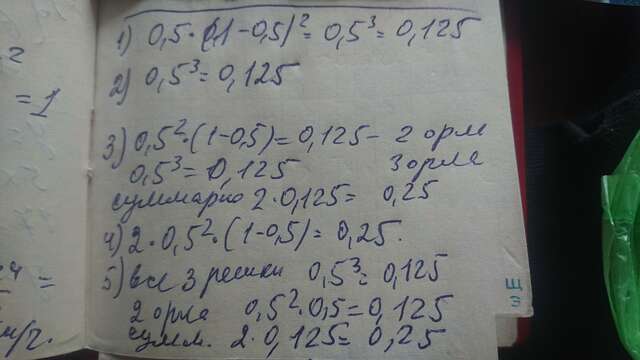 2
= 1
24 =
м/г.
1) 0,5·(1-0,5)²= 0,5³= 0,125
2) 0,5³= 0,125
3) 0,5²·(1-0,5)= 0,125- 2 орл
0,5³= 0,125 3 орла
суммарно 2·0,125= 0,25
4) 2·0,5²·(1-0,5)= 0,25.
5) все 3 решки 0,5³= 0,125
2 орла 0,5²·0,5=0,125
сумм. 2·0,125= 0,25
Щ
Э